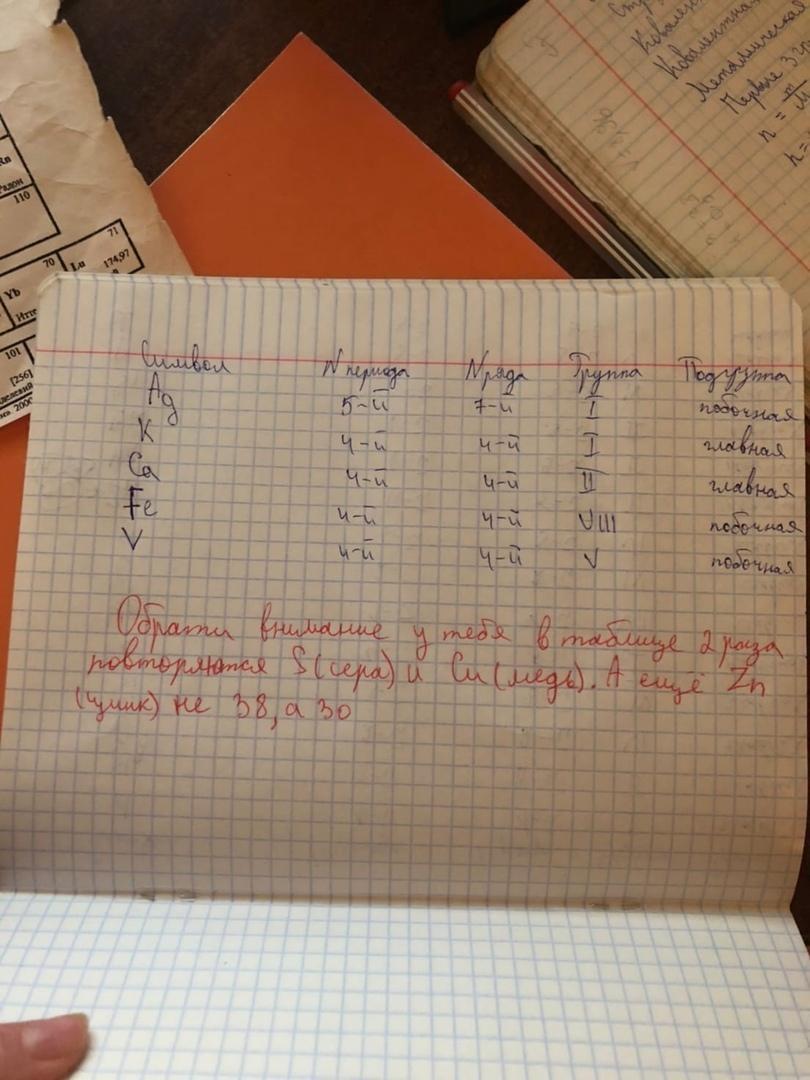 Стр
Ковален
Ковалентная
Металлическая
Первые 3
n = m
n =
Rn
110
70
71
Yb
Lu 174,97
101
[256]
Символ N периода N ряда Группа Подгруппа
Ag 5-й 7-й I побочная
K 4-й 4-й I главная
Ca 4-й 4-й II главная
Fe 4-й 4-й VIII побочная
V 4-й 4-й V побочная
Обрати внимание у тебя в таблице 2 раза
повторяются S(сера) и Cu(медь). А ещё Zn
(цинк) не 38, а 30